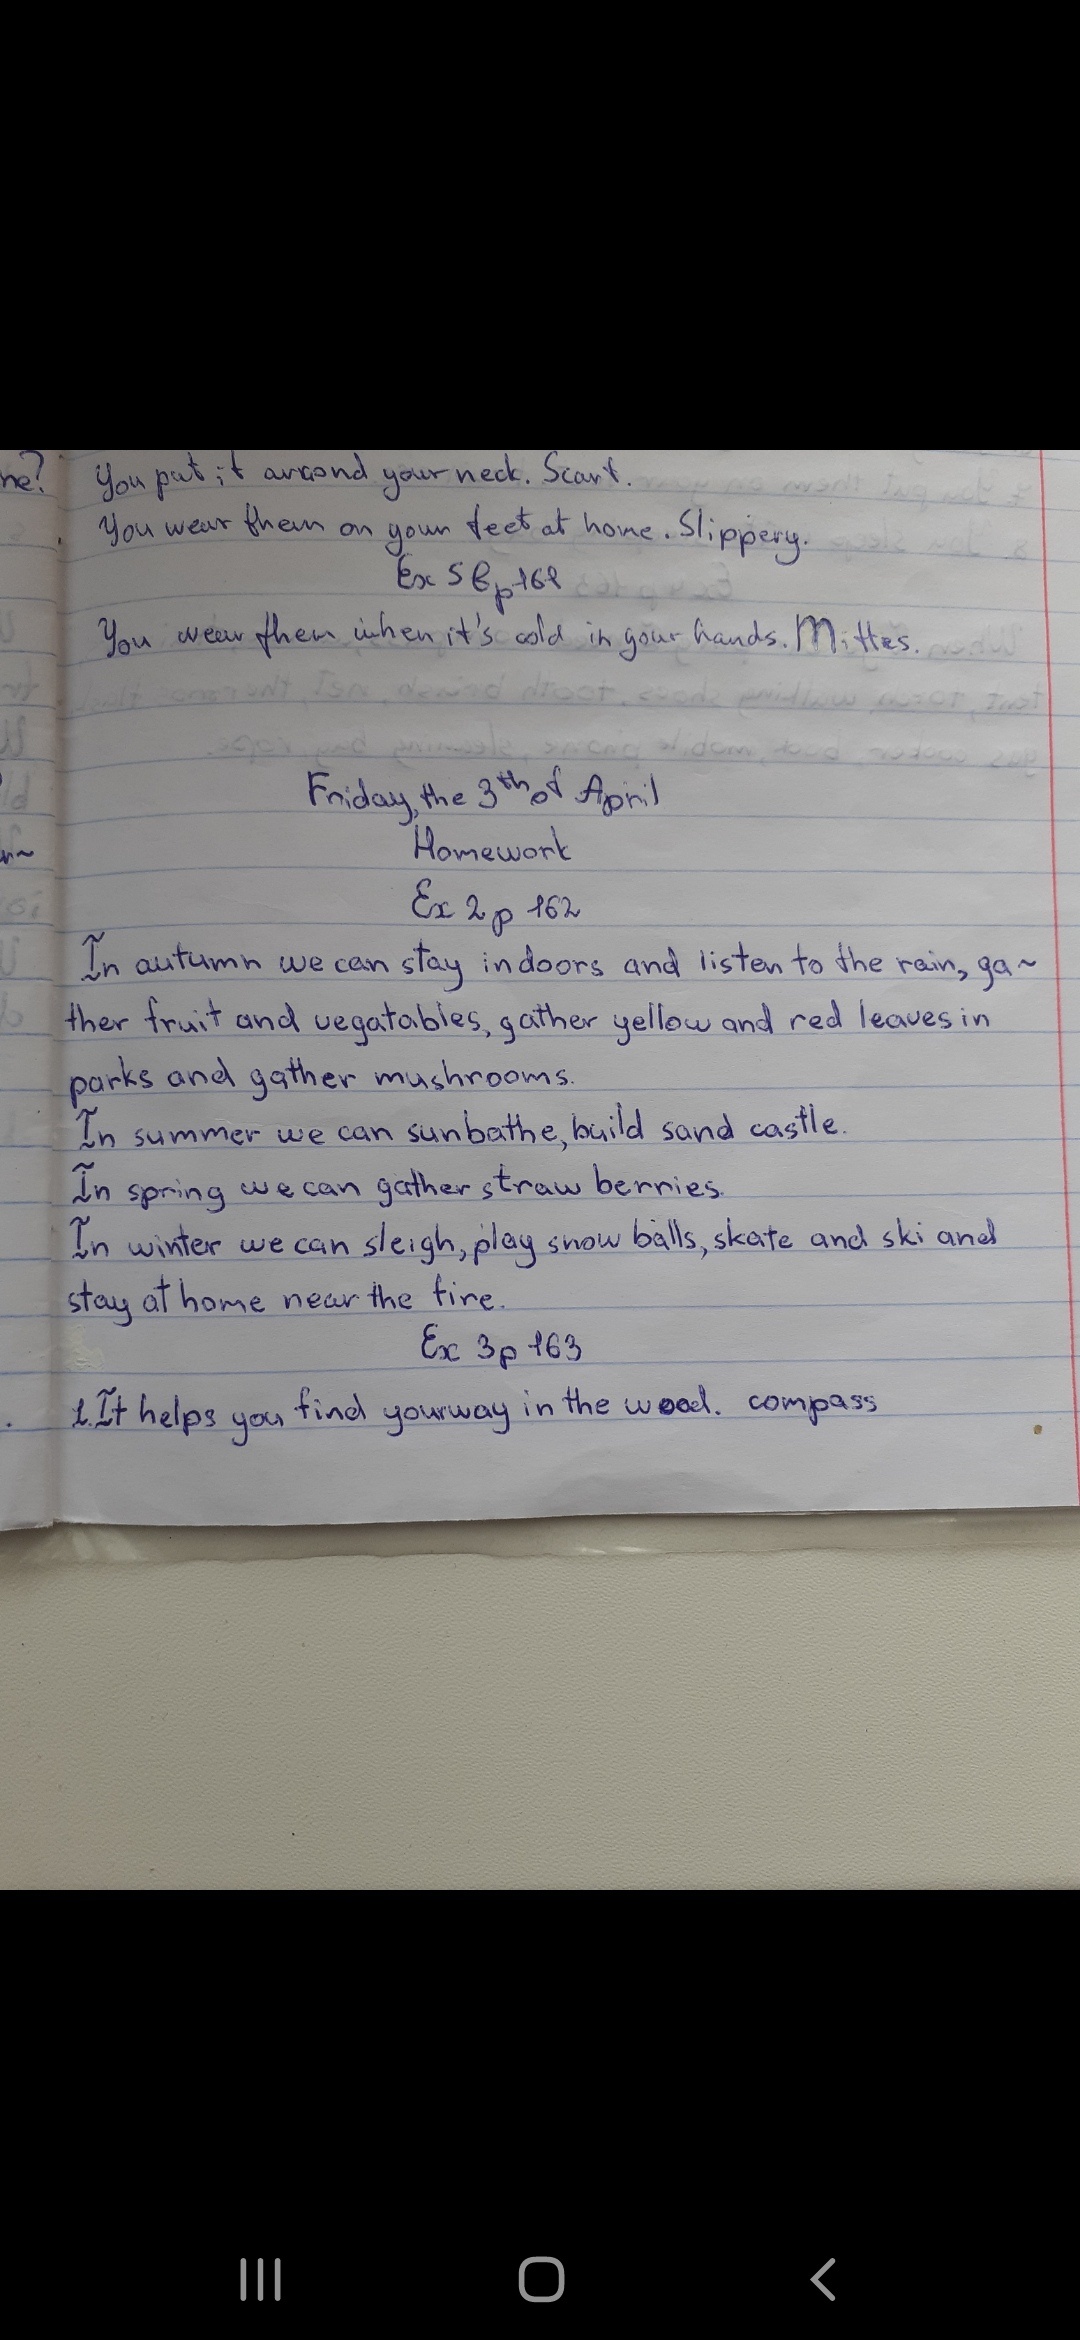 ne? You put it around your neck. Scarf.
You wear them on your feet at home. Slippery.
Ex 5 p 161
You wear them when it's cold in your hands. Mittes.
Friday, the 3th of April
Homework
Ex 2 p 162
In autumn we can stay indoors and listen to the rain, ga~
ther fruit and vegatables, gather yellow and red leaves in
parks and gather mushrooms.
In summer we can sunbathe, build sand castle.
In spring we can gather straw berries.
In winter we can sleigh, play snow balls, skate and ski and
stay at home near the fire.
Ex 3 p 163
1. It helps you find your way in the wood. compass